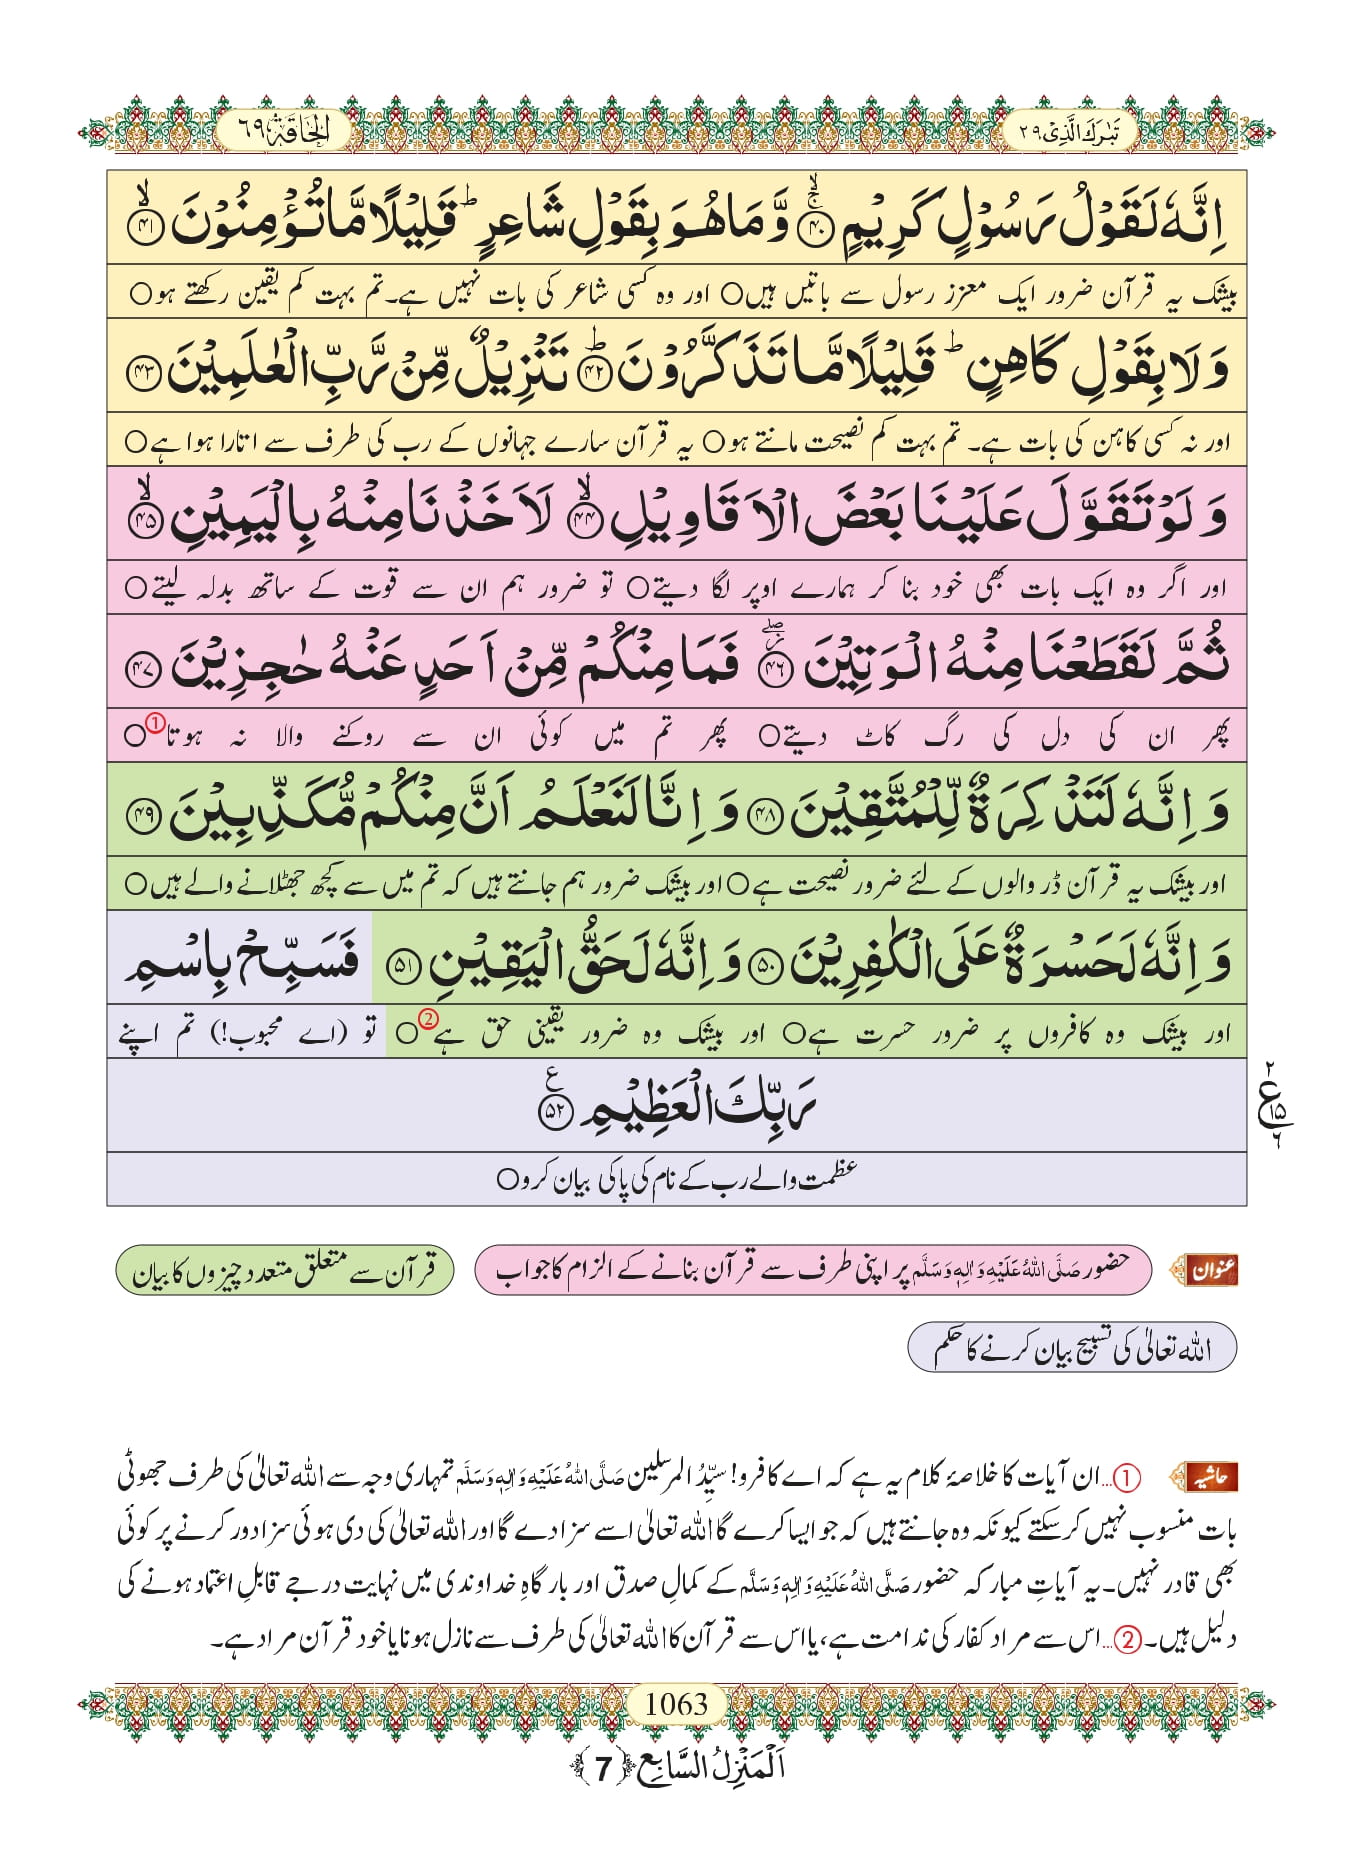 تَبٰرَكَ الَّذِیْ ۲۹
اَلْحَآقَّة ۶۹
اِنَّهٗ لَقَوْلُ رَسُوْلٍ كَرِیْمٍ ﴿۴۰﴾ۙۚ وَّ مَا هُوَ بِقَوْلِ شَاعِرٍؕ قَلِیْلًا مَّا تُؤْمِنُوْنَ ﴿۴۱﴾ۙ
بیشک یہ قرآن ضرور ایک معزز رسول سے باتیں ہیں○ اور وہ کسی شاعر کی بات نہیں ہے۔ تم بہت کم یقین رکھتے ہو○
وَ لَا بِقَوْلِ كَاهِنٍؕ قَلِیْلًا مَّا تَذَكَّرُوْنَ ﴿۴۲﴾ؕ تَنْزِیْلٌ مِّنْ رَّبِّ الْعٰلَمِیْنَ ﴿۴۳﴾
اور نہ کسی کاہن کی بات ہے۔ تم بہت کم نصیحت مانتے ہو○ یہ قرآن سارے جہانوں کے رب کی طرف سے اتارا ہوا ہے○
وَ لَوْ تَقَوَّلَ عَلَیْنَا بَعْضَ الْاَقَاوِیْلِ ﴿۴۴﴾ۙ لَاَخَذْنَا مِنْهُ بِالْیَمِیْنِ ﴿۴۵﴾ۙ
اور اگر وہ ایک بات بھی خود بنا کر ہمارے اوپر لگا دیتے○ تو ضرور ہم ان سے قوت کے ساتھ بدلہ لیتے○
ثُمَّ لَقَطَعْنَا مِنْهُ الْوَتِیْنَ ﴿۴۶﴾ۖ٘ فَمَا مِنْكُمْ مِّنْ اَحَدٍ عَنْهُ حٰجِزِیْنَ ﴿۴۷﴾
پھر ان کی دل کی رگ کاٹ دیتے○ پھر تم میں کوئی ان سے روکنے والا نہ ہوتا①○
وَ اِنَّهٗ لَتَذْكِرَةٌ لِّلْمُتَّقِیْنَ ﴿۴۸﴾ وَ اِنَّا لَنَعْلَمُ اَنَّ مِنْكُمْ مُّكَذِّبِیْنَ ﴿۴۹﴾
اور بیشک یہ قرآن ڈر والوں کے لئے ضرور نصیحت ہے○ اور بیشک ضرور ہم جانتے ہیں کہ تم میں سے کچھ جھٹلانے والے ہیں○
وَ اِنَّهٗ لَحَسْرَةٌ عَلَى الْكٰفِرِیْنَ ﴿۵۰﴾ وَ اِنَّهٗ لَحَقُّ الْیَقِیْنِ ﴿۵۱﴾ فَسَبِّحْ بِاسْمِ
اور بیشک وہ کافروں پر ضرور حسرت ہے○ اور بیشک وہ ضرور یقینی حق ہے②○ تو (اے محبوب!) تم اپنے
رَبِّكَ الْعَظِیْمِ ﴿۵۲﴾ع
۲ ع ۱۵ ۶
عظمت والے رب کے نام کی پاکی بیان کرو○
عنوان
حضور صَلَّی اللہُ عَلَیْہِ وَاٰلِہٖ وَسَلَّم پر اپنی طرف سے قرآن بنانے کے الزام کا جواب
قرآن سے متعلق متعدد چیزوں کا بیان
اللہ تعالیٰ کی تسبیح بیان کرنے کا حکم
حاشیہ
①...ان آیات کا خلاصۂ کلام یہ ہے کہ اے کافرو! سیِّدُ المرسلین صَلَّی اللہُ عَلَیْہِ وَاٰلِہٖ وَسَلَّم تمہاری وجہ سے اللہ تعالیٰ کی طرف جھوٹی
بات منسوب نہیں کر سکتے کیونکہ وہ جانتے ہیں کہ جو ایسا کرے گا اللہ تعالیٰ اسے سزا دے گا اور اللہ تعالیٰ کی دی ہوئی سزا دور کرنے پر کوئی
بھی قادر نہیں۔ یہ آیاتِ مبارکہ حضور صَلَّی اللہُ عَلَیْہِ وَاٰلِہٖ وَسَلَّم کے کمالِ صدق اور بارگاہِ خداوندی میں نہایت درجے قابلِ اعتماد ہونے کی
دلیل ہیں۔ ②...اس سے مراد کفار کی ندامت ہے، یا اس سے قرآن کا اللہ تعالیٰ کی طرف سے نازل ہونا یا خود قرآن مراد ہے۔
1063
اَلْمَنْزِلُ السَّابِع ﴿7﴾